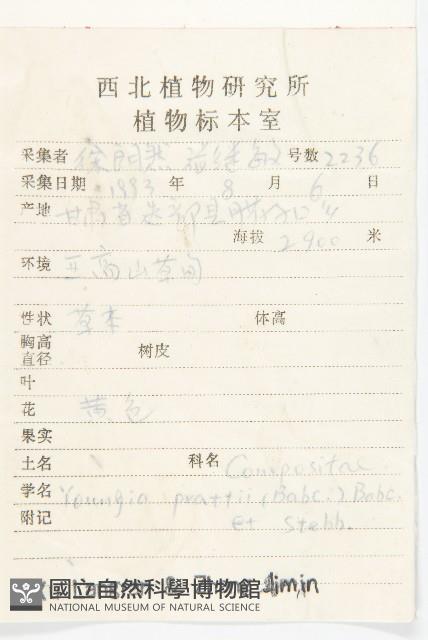 西北植物研究所
植物标本室
采集者 徐朗然 敏 号数 2236
采集日期 1993 年 8 月 6 日
产地 甘肃省迭部县
海拔 2900 米
环境 亚高山草甸
性状 草本 体高
胸高直径 树皮
叶
花 黄色
果实
土名 科名 Compositae
学名 Youngia prattii (Babc.) Babc.
附记 et Stebb.
國立自然科學博物館
NATIONAL MUSEUM OF NATURAL SCIENCE